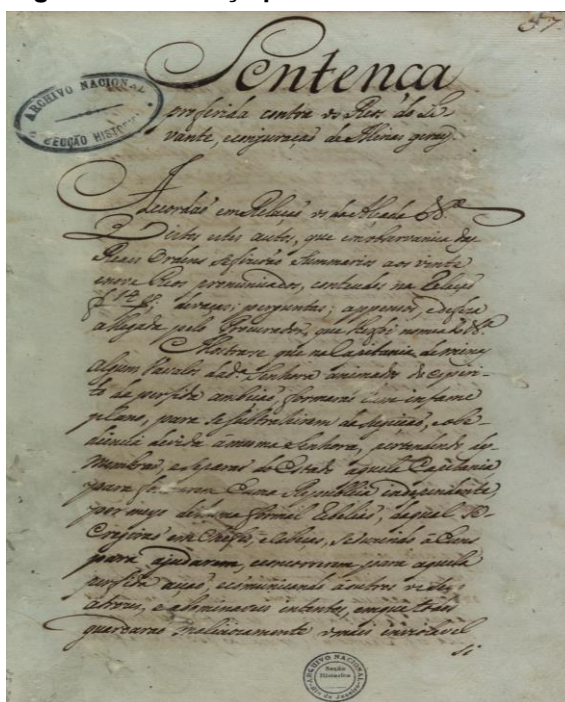 57
Sentença
proferida contra os Reos do Le-
vante, e conjuração de Minas geraes.
ARCHIVO NACIONAL
SECÇÃO HISTORICA
Accordaõ em Relaçaõ os da Alçada &ª
Vistos estes autos, que em observancia das
Reaes Ordens se fizeraõ Summarios aos vinte
e nove Reos pronunciados, conteudos na Relaçaõ
f 14 devaças; perguntas; appensos, e defeza
allegada pelo Procurador, que lhe foi nomeado &ª
Mostrase que na Capitania de minas
alguns Vassalos da dª Senhora animados do espiri-
to de perfida ambiçaõ, formaraõ hum infame
plano, para se subtrahirem da sugeiçaõ, e obe-
diencia devida á mesma Senhora, pertendendo des-
membrar, e separar do Estado aquela Capitania
para formarem huma Republica independente,
por meyo de huma formal rebeliaõ, da qual se
erigiraõ em Chefes, e Cabeças, seduzindo a huns
para ajudarem, e concorrerem para aquela
perfida acçaõ, e communicando a outros os seus
atrozes, e abominaveis intentos, em que todos
guardavaõ maliciosamente o mais inviolavel
si
ARCHIVO NACIONAL
Secção
Historica